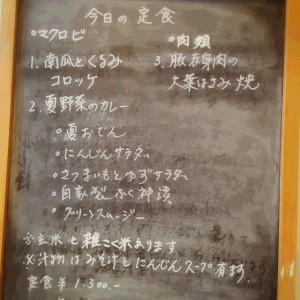 今日の定食
○マクロビ
1. 南瓜とくるみ
コロッケ
2. 夏野菜のカレー
○肉類
3. 豚赤身肉の
大葉はさみ焼
○夏おでん
○にんじんサラダ
○さつまいもとゆずサラダ
○自家製ふく神漬
○グリーンスムージー
※玄米と雑こく米あります
※汁物はみそ汁とにんじんスープ有ます。
定食 ¥1.300.-